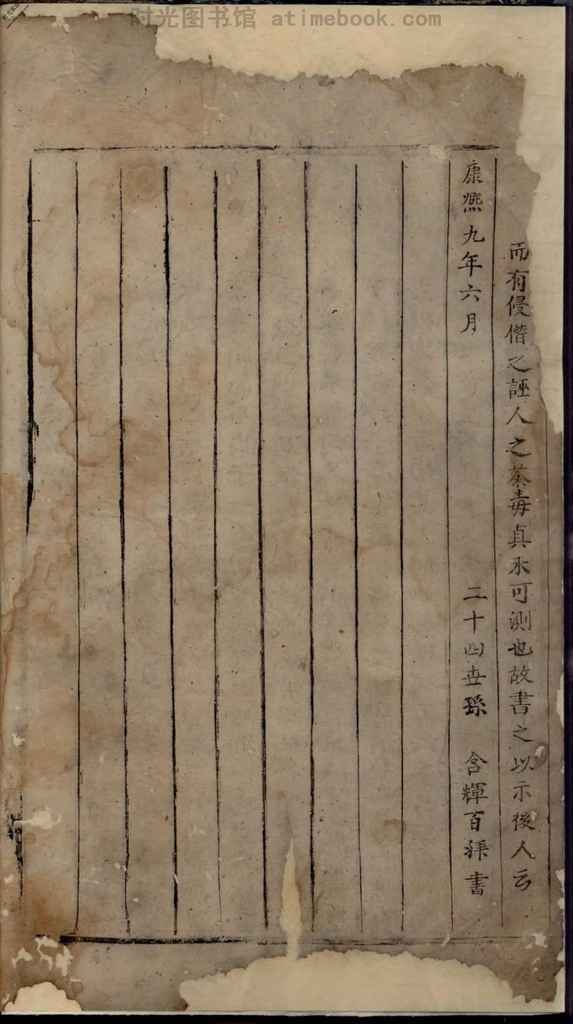 时光图书馆 atimebook.com
而有侵僭之誣人之荼毒真未可測也故書之以示後人云
康熈九年六月 二十四世孫 含輝百拜書